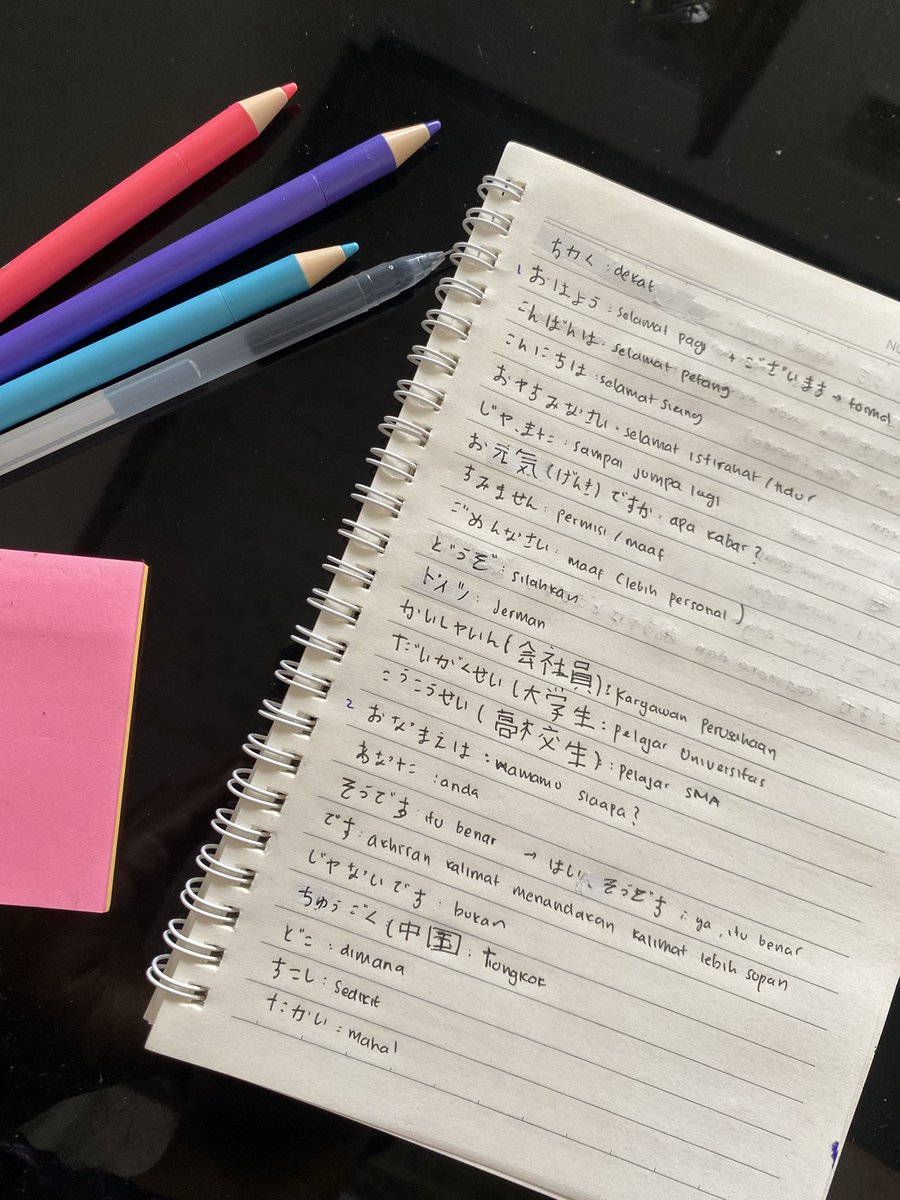 ちかく : dekat
1 おはよう : selamat pagi + ございます → formal
こんばんは : selamat petang
こんにちは : selamat siang
おやすみなさい : selamat istirahat / tidur
じゃ、また : sampai jumpa lagi
お元気 (げんき) ですか : apa kabar?
すみません : permisi / maaf
ごめんなさい : maaf (lebih personal)
どうぞ : silahkan
ドイツ : Jerman
かいしゃいん (会社員) : karyawan perusahaan
だいがくせい (大学生 : pelajar universitas
こうこうせい (高校生) : pelajar SMA
2 おなまえは : namamu siaapa?
あなた : anda
そうです : itu benar → はい、そうです : ya, itu benar
です : akhiran kalimat menandakan kalimat lebih sopan
じゃないです : bukan
ちゅうごく (中国 : tiongkok
どこ : dimana
すこし : sedikit
たかい : mahal